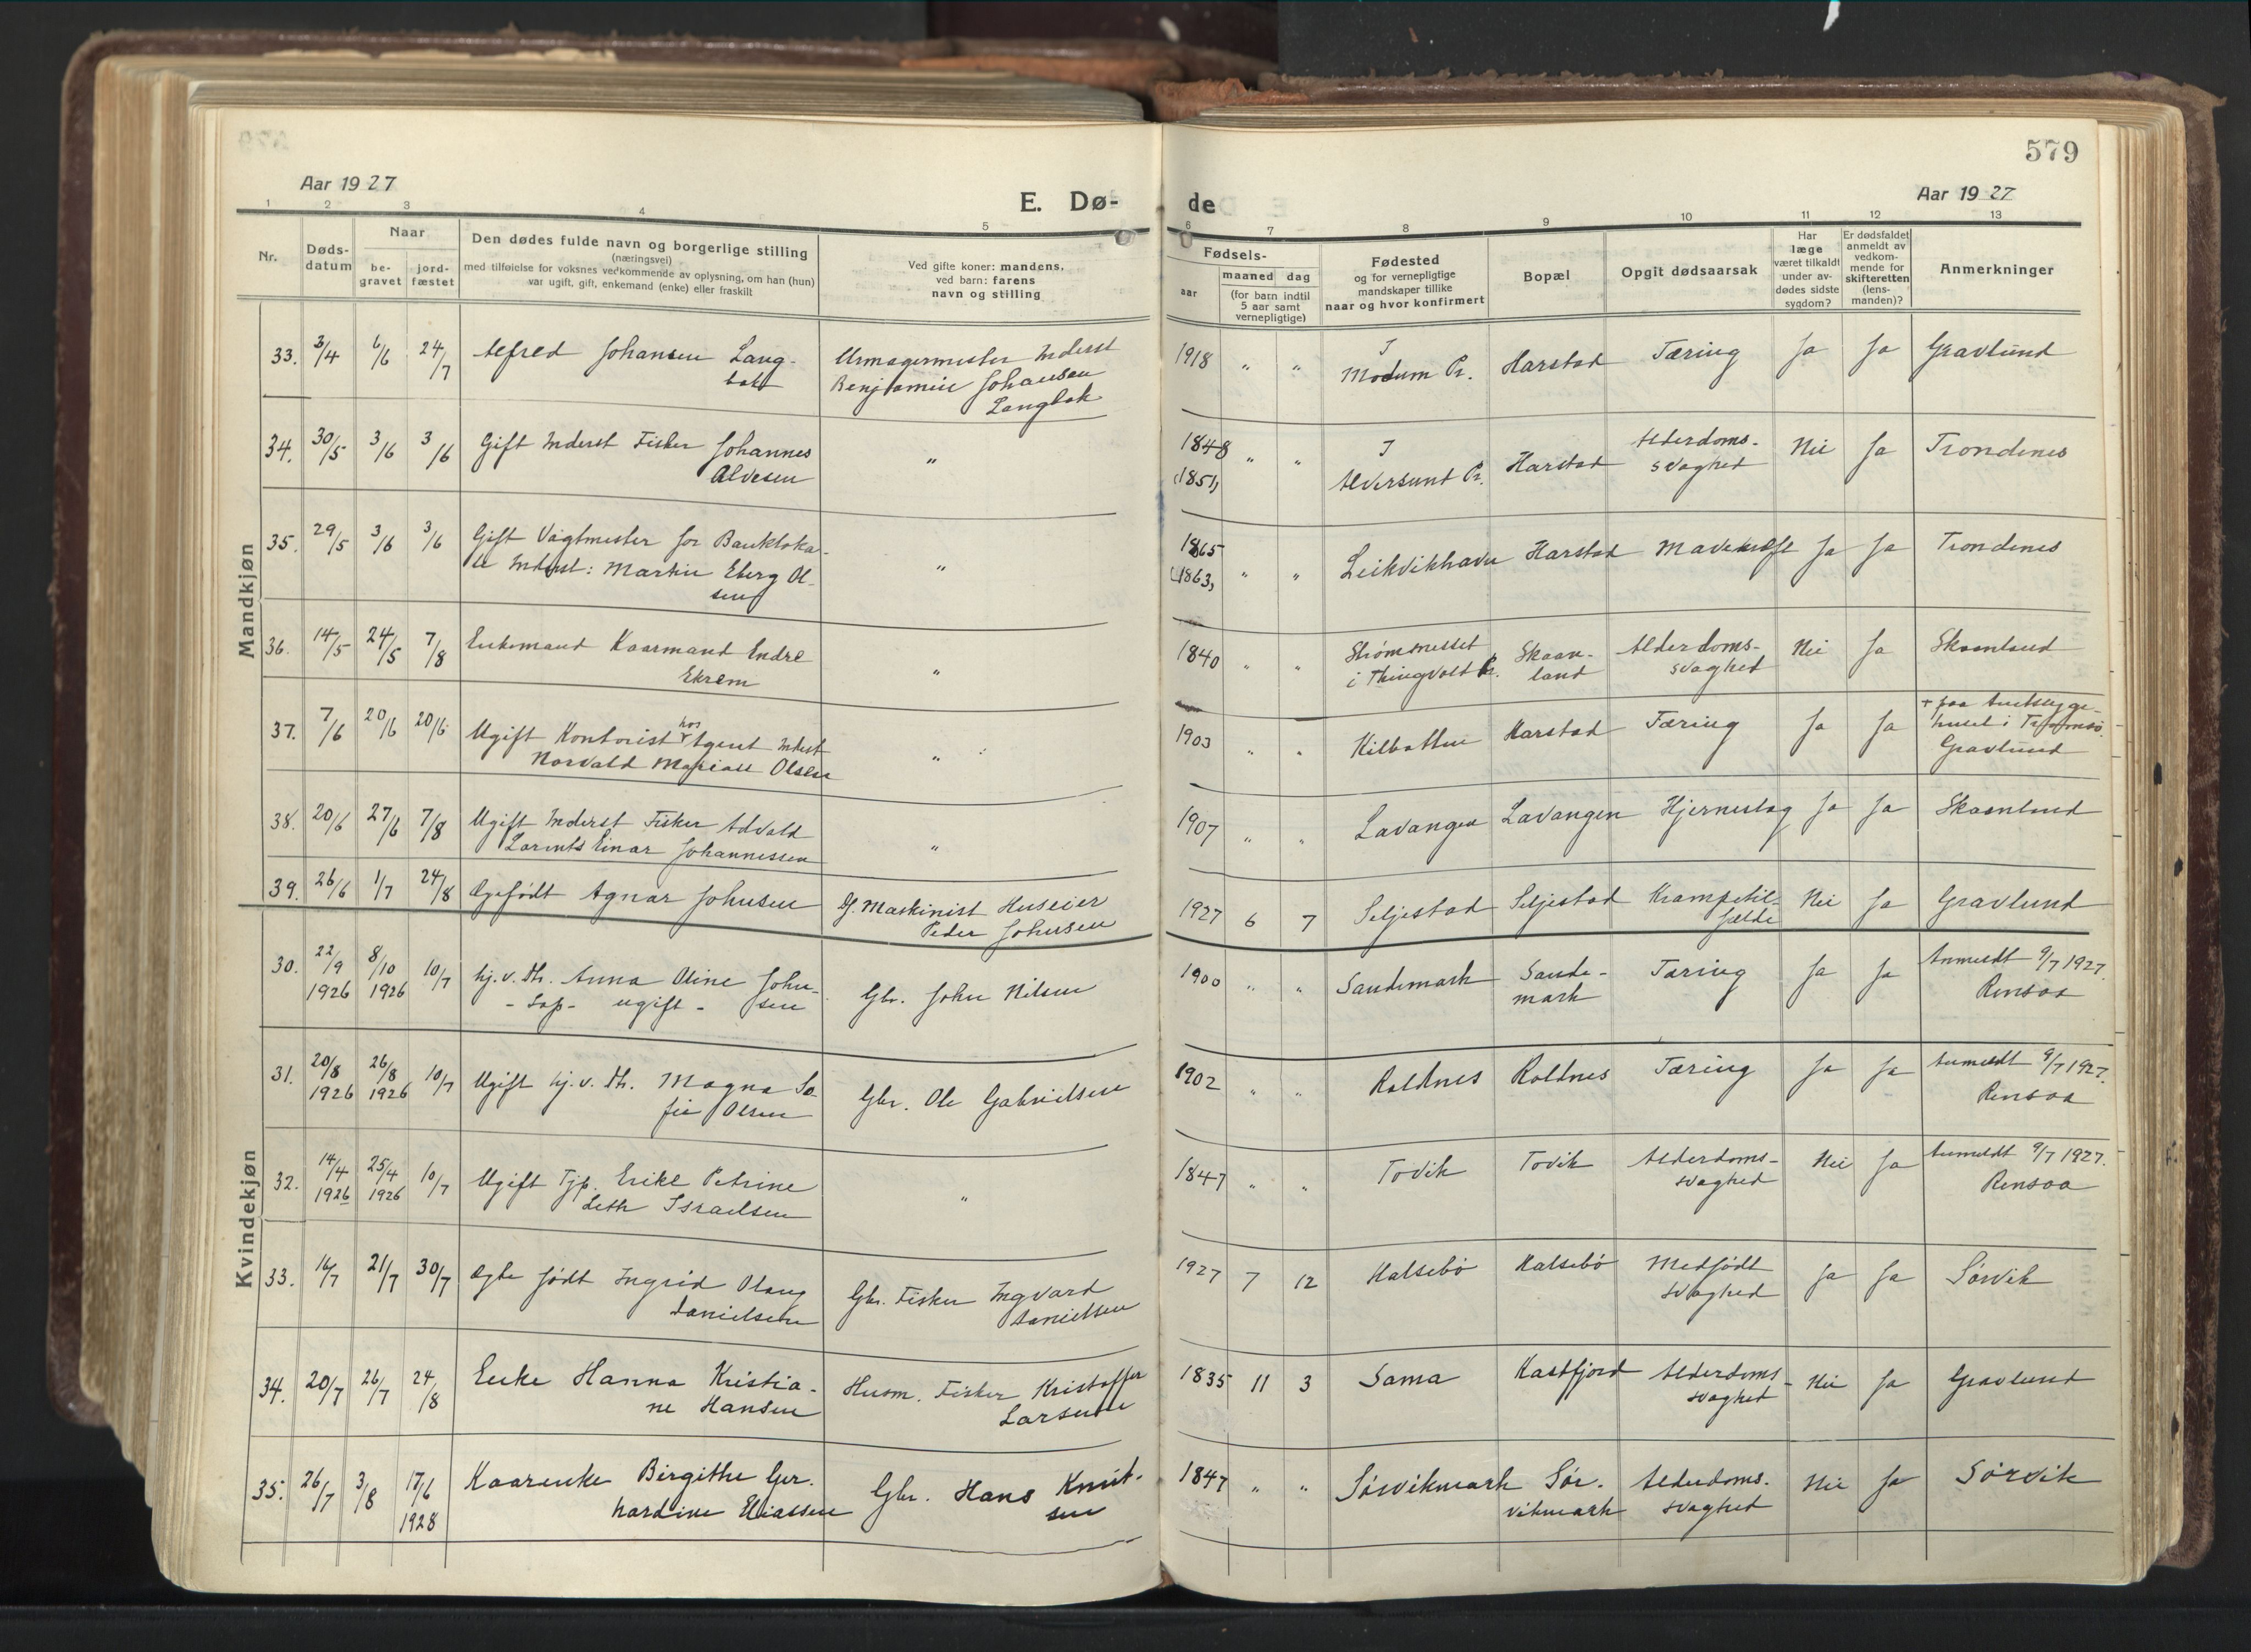 579
Aar 1927
E. Dø-
de
Aar 1927
1 2 3 4 5 6 7 8 9 10 11 12 13
Nr.
Døds-
datum
Naar
be-
gravet
jord-
fæstet
Den dødes fulde navn og borgerlige stilling
(næringsvei)
med tilføielse for voksnes vedkommende av oplysning, om han (hun)
var ugift, gift, enkemand (enke) eller fraskilt
Ved gifte koner: mandens,
ved barn: farens
navn og stilling
Fødsels-
aar
maaned dag
(for barn indtil
5 aar samt
vernepligtige)
Fødested
og for vernepligtige
mandskaper tillike
naar og hvor konfirmert
Bopæl
Opgit dødsaarsak
Har
læge
været tilkaldt
under av-
dødes sidste
sygdom?
Er dødsfaldet
anmeldt av
vedkom-
mende for
skifteretten
(lens-
manden)?
Anmerkninger
Mandkjøn
33. 3/4 6/6 24/7 Alfred Johansen Lang-
bak
Urmagermester Inderst
Benjamin Johansen
Langbak
1918 " " I
Modum Pr. Harstad Tæring Ja Ja Gravlund
34. 30/5 3/6 3/6 Gift Inderst Fisker Johannes
Alvesen
"
1848
(1851) " " I
Alversunt Pr. Harstad Alderdoms-
svaghed Nei Ja Trondenes
35. 29/5 3/6 3/6 Gift Vagtmester for Bankloka-
le Inderst: Martin Eberg Ol-
sen
"
1865
(1863) " " Leikvikhavn Harstad Mavekræft Ja Ja Trondenes
36. 14/5 24/5 7/8 Enkemand Kaarmand Endre
Ekrem
"
1840 " " Strømsnesset
i Thingvold Pr. Skaan-
land Alderdoms-
svaghed Nei Ja Skaanland
37. 7/6 20/6 20/6 Ugift Kontorist hos Agent Inderst
Norvald Mariall Olsen
"
1903 " " Kilbotten Harstad Tæring Ja Ja + paa Amtssyge-
huset i Tromsø.
Gravlund
38. 20/6 27/6 7/8 Ugift Inderst Fisker Advald
Lorents Einar Johannessen
"
1907 " " Lavangen Lavangen Hjerneslag Ja Ja Skaanland
39. 26/6 1/7 24/8 Ægefødt Agnar Johnsen
G. Maskinist Huseier
Peder Johnsen
1927 6 7 Seljestad Seljestad Krampetil-
fælde Nei Ja Gravlund
Kvindekjøn
30. 22/9 1926 8/10 1926 10/7 hj.v. Dt. Anna Oline John-
- Lap - ugift - sen
Gbr. John Nilsen
1900 " " Sandemark Sande-
mark Tæring Ja Ja Anmeldt 9/7 1927.
Rensaa
31. 20/8 1926 26/8 1926 10/7 Ugift hj.v. Dt. Magna So-
fie Olsen
Gbr. Ole Gabrielsen
1902 " " Roldnes Roldnes Tæring Ja Ja Anmeldt 9/7 1927.
Rensaa
32. 14/4 1926 25/4 1926 10/7 Ugift Tjp. Erike Petrine
Leth Israelsen
"
1847 " " Tovik Tovik Alderdoms-
svaghed Nei Ja Anmeldt 9/7 1927.
Rensaa
33. 16/7 21/7 30/7 Ægte født Ingrid Olaug
Danielsen
Gbr. Fisker Ingvard
Danielsen
1927 7 12 Halsebø Halsebø Medfødt
svaghed Ja Ja Sørvik
34. 20/7 26/7 24/8 Enke Hanna Kristia-
ne Hansen
Husm. Fisker Kristoffer
Larsen
1835 11 3 Sama Kastfjord Alderdoms-
svaghed Nei Ja Gravlund
35. 26/7 3/8 17/6 1928 Kaarenke Birgithe Ger-
hardine Eliassen
Gbr. Hans Knut-
sen
1847 " " Sørvikmark Sør-
vikmark Alderdoms-
svaghed Nei Ja Sørvik